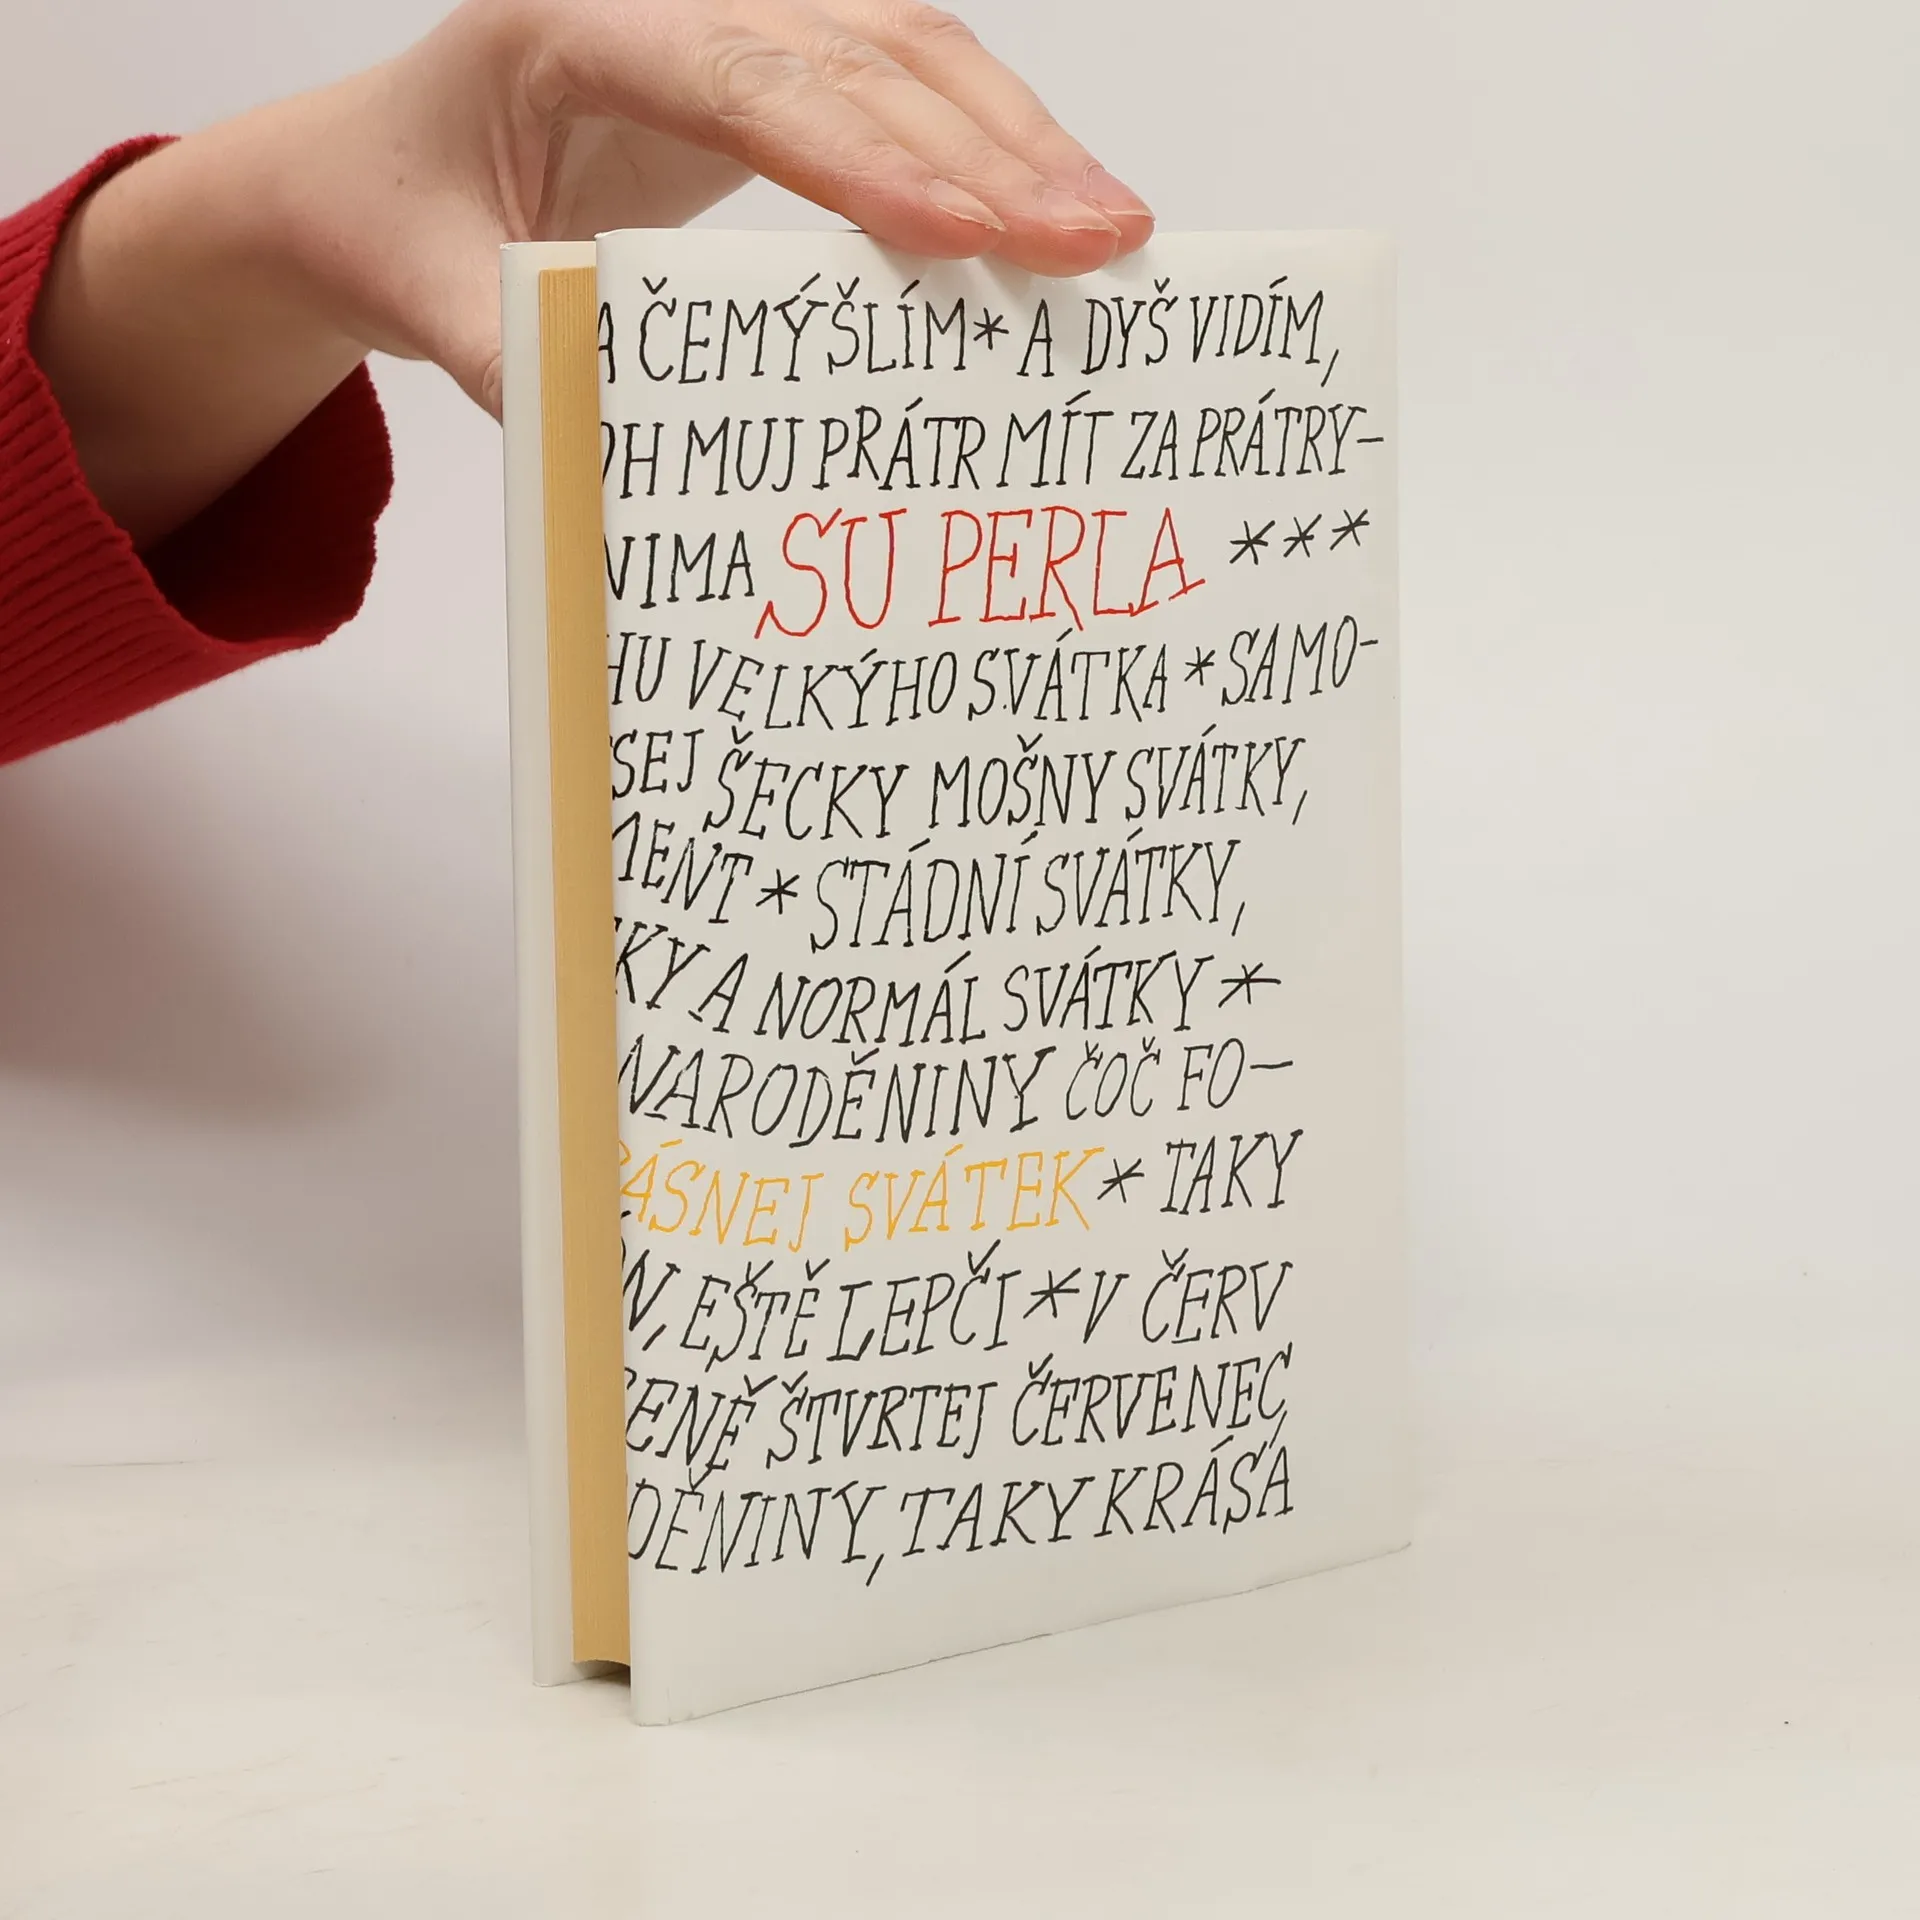 A ČEMÝŠLÍM * A DYŠ VIDÍM,
MUJ PRÁTR MÍT ZA PRÁTRY-
SU PERLA * * *
VELKÝHO SVÁTKA * SAMO-
ŠECKY MOŠNY SVÁTKY,
* STÁDNÍ SVÁTKY,
A NORMÁL SVÁTKY *
NARODĚNINY ČOČ FO-
ÁSNEJ SVÁTEK * TAKY
EŠTĚ LEPČI * V ČERV
ENĚ ŠTVRTEJ ČERVENEC,
DĚNINY, TAKY KRÁSA